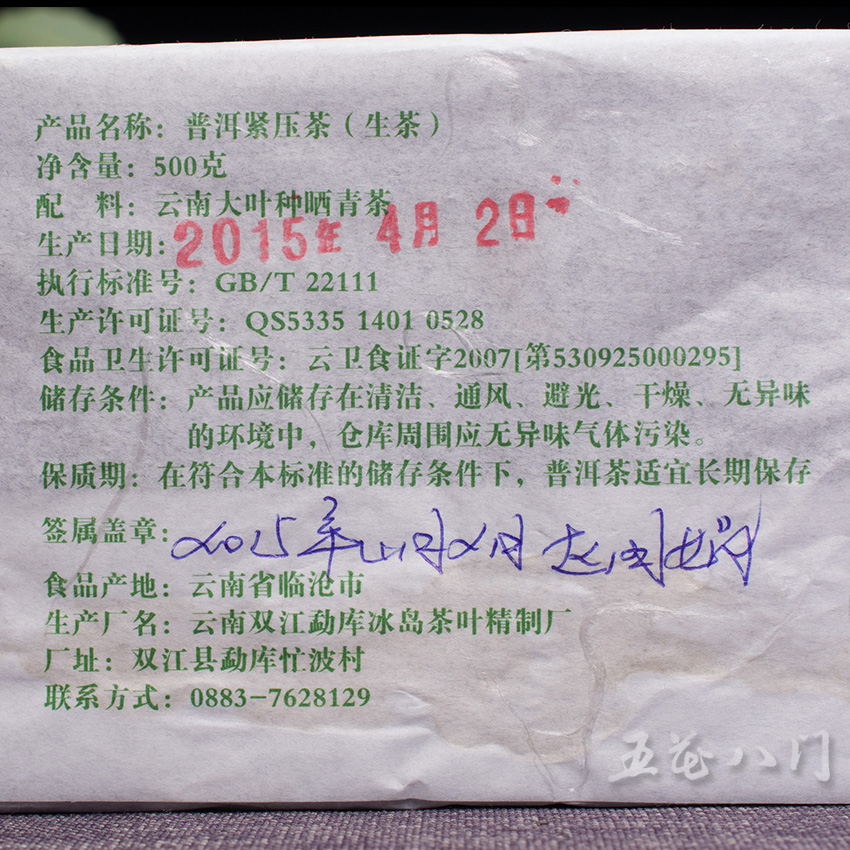 产品名称：普洱紧压茶（生茶）
净含量：500克
配　料：云南大叶种晒青茶
生产日期：2015年 4月 2日
执行标准号：GB/T 22111
生产许可证号：QS5335 1401 0528
食品卫生许可证号：云卫食证字2007[第530925000295]
储存条件：产品应储存在清洁、通风、避光、干燥、无异味
的环境中，仓库周围应无异味气体污染。
保质期：在符合本标准的储存条件下，普洱茶适宜长期保存
签属盖章：2015年4月2日
食品产地：云南省临沧市
生产厂名：云南双江勐库冰岛茶叶精制厂
厂址：双江县勐库忙波村
联系方式：0883-7628129
五花八门